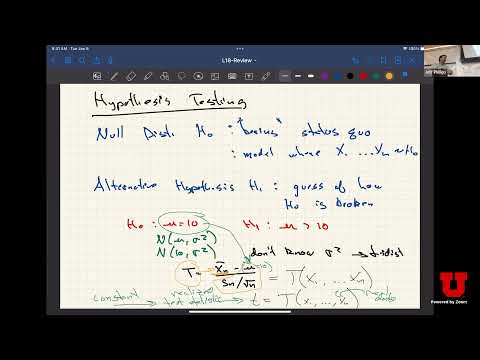 8:31 AM Tue Jan 9
L18-Review
100%
Jeff Phillips
Hypothesis Testing
Null Dist. H₀ : "boring" status quo
: model where X₁ ... Xₙ ~ H₀
Alternative Hypothesis H₁ : guess of how
H₀ is broken
H₀ : μ=10 H₁ : μ > 10
N(μ, σ²)
N(10, σ²)
don't know σ² → t-dist
T = X̄ₙ - (μ=10) / Sₙ/√n = T(X₁, ... Xₙ)
constant realized test statistic t = T(x₁, ..., xₙ)
U
Powered by Zoom